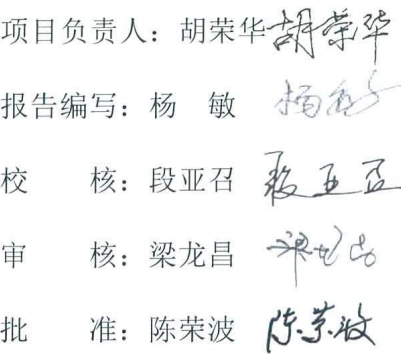 项目负责人：胡荣华 胡荣华
报告编写：杨　敏 杨敏
校　　核：段亚召 段亚召
审　　核：梁龙昌 梁龙昌
批　　准：陈荣波 陈荣波